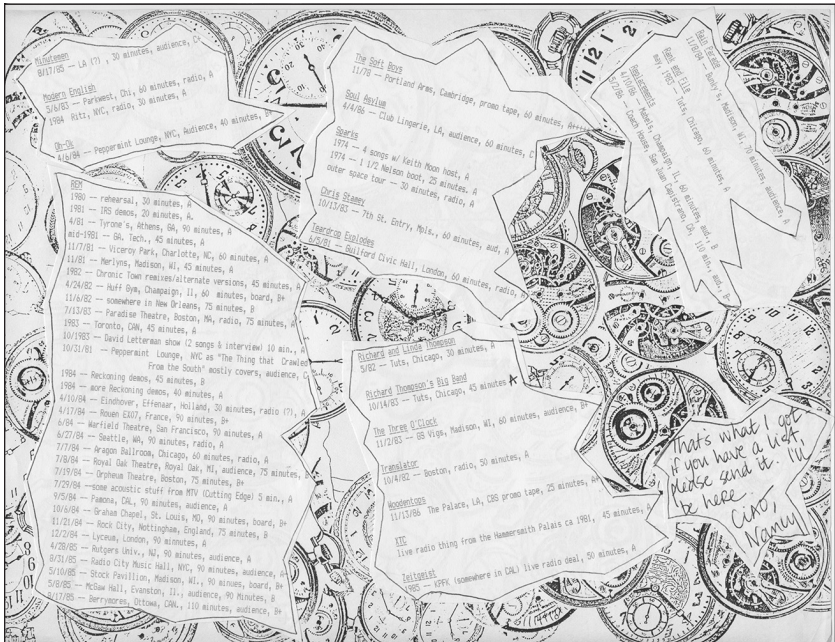 Minutemen
8/17/85 -- LA (?) , 30 minutes, audience, C+
Modern English
5/6/83 -- Parkwest, Chi, 60 minutes, radio, A
1984 Ritz, NYC, radio, 30 minutes, A
Oh-Ok
4/6/84 -- Peppermint Lounge, NYC, Audience, 40 minutes, B+
REM
1980 -- rehearsal, 30 minutes, A
1981 -- IRS demos, 20 minutes, A.
4/81 -- Tyrone's, Athens, GA, 90 minutes, A
mid-1981 -- GA. Tech., 45 minutes, A
11/7/81 -- Viceroy Park, Charlotte, NC, 60 minutes, A
11/81 -- Merlyns, Madison, WI, 45 minutes, A
1982 -- Chronic Town remixes/alternate versions, 45 minutes, A
4/24/82 -- Huff Gym, Champaign, Il, 60 minutes, board, B+
11/6/82 -- somewhere in New Orleans, 75 minutes, B
7/13/83 -- Paradise Theatre, Boston, MA, radio, 75 minutes, A
1983 -- Toronto, CAN, 45 minutes, A
10/1983 -- David Letterman show (2 songs & interview) 10 min., A
10/31/81 -- Peppermint Lounge, NYC as "The Thing that Crawled
From the South' mostly covers, audience, C
1984 -- Reckoning demos, 45 minutes, B
1984 -- more Reckoning demos, 40 minutes, A
4/10/84 -- Eindhover, Effenaar, Holland, 30 minutes, radio (?), A
4/17/84 -- Rouen EXO7, France, 90 minutes, B+
6/84 -- Warfield Theatre, San Francisco, 90 minutes, A
6/27/84 -- Seattle, WA, 90 minutes, radio, A
7/7/84 -- Aragon Ballroom, Chicago, 60 minutes, radio, A
7/8/84 -- Royal Oak Theatre, Royal Oak, MI, audience, 75 minutes, B
7/19/84 -- Orpheum Theatre, Boston, 75 minutes, B+
7/29/84 --some acoustic stuff from MTV (Cutting Edge) 5 min., A
9/5/84 -- Pamona, CAL, 90 minutes, audience, A
10/6/84 -- Graham Chapel, St. Louis, MO, 90 minutes, board, B+
11/21/84 -- Rock City, Nottingham, England, 75 minutes, B
12/2/84 -- Lyceum, London, 90 minutes, A
4/28/85 -- Rutgers Univ., NJ, 90 minutes, audience, A
8/31/85 -- Radio City Music Hall, NYC, 90 minutes, audience, A-
5/10/85 -- Stock Pavillion, Madison, WI., 90 minues, board, B+
5/8/85 -- McGaw Hall, Evanston, Il., audience, 90 Minutes, B
8/17/85 -- Barrymores, Ottowa, CAN., 110 minutes, audience, B+
The Soft Boys
11/78 -- Portland Arms, Cambridge, promo tape, 60 minutes, A++++
Soul Asylum
4/4/86 -- Club Lingerie, LA, audience, 60 minutes, C
Sparks
1974 -- 4 songs w/ Keith Moon host, A
1974 -- 1 1/2 Nelson boot, 25 minutes. A
outer space tour -- 30 minutes, radio, A
Chris Stamey
10/13/83 -- 7th St. Entry, Mpls., 60 minutes, aud, A
Teardrop Explodes
6/5/81 -- Guilford Civic Hall, London, 60 minutes, radio,
Richard and Linda Thompson
5/82 -- Tuts, Chicago, 30 minutes, A
Richard Thompson's Big Band
10/14/83 -- Tuts, Chicago, 45 minutes A
The Three O'Clock
11/2/83 -- GS Vigs, Madison, WI, 60 minutes, audience, B+
Translator
10/4/82 -- Boston, radio, 50 minutes, A
Woodentops
11/13/86 The Palace, LA, CBS promo tape, 25 minutes, A+
XTC
live radio thing from the Hammersmith Palais ca 1981, 45 minutes, A
Zeitgeist
1985 -- KPFK (somewhere in CAL) live radio deal, 50 minutes, A
Rain Parade
11/8/84 -- Bunky's, Madison, WI, 70 minutes audience, A
Rank and File
may 1983 -- Tuts, Chicago, 60 minutes, A
Replacements
4/10/86 -- Mabels, Champaign, IL, 60 minutes, aud., B
5/2/86 -- Coach House, San Juan Capistrano, CA, 110 min., aud., B+
That's what I got
if you have a list,
please send it. I'll
be here.
CIAO,
Nancy